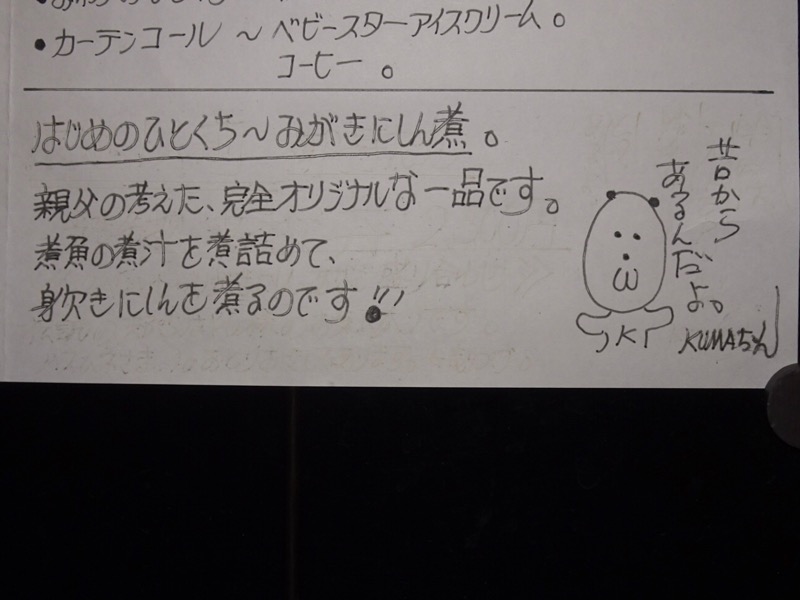 ・カーテンコール ～ ベビースターアイスクリーム。
コーヒー 。
はじめのひとくち～みがきにしん煮 。
親父の考えた、完全オリジナルな一品です。
煮魚の煮汁を煮詰めて、
身欠きにしんを煮るのです!!!
昔から
あるんだよ。
KUMAちゃん